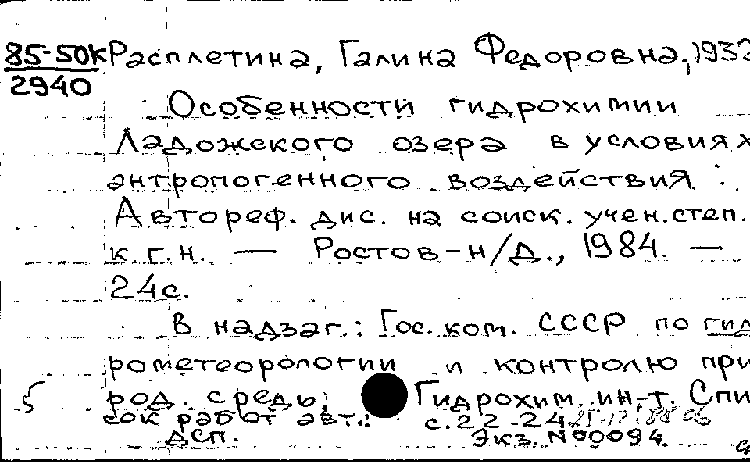 85-50к Расплетина, Галина Федоровна, 1932
2940
Особенности гидрохимии
Ладожского озера в условиях
антропогенного воздействия :
Автореф. дис. на соиск. учен. степ.
к.г.н. — Ростов-н/Д., 1984. —
24с.
В надзаг.: Гос. ком. СССР по гид
рометеорологии и контролю при
род. среды, Гидрохим. ин-т. Спи
сок работ авт.: с.22-24
ДСП. Экз. №00094.